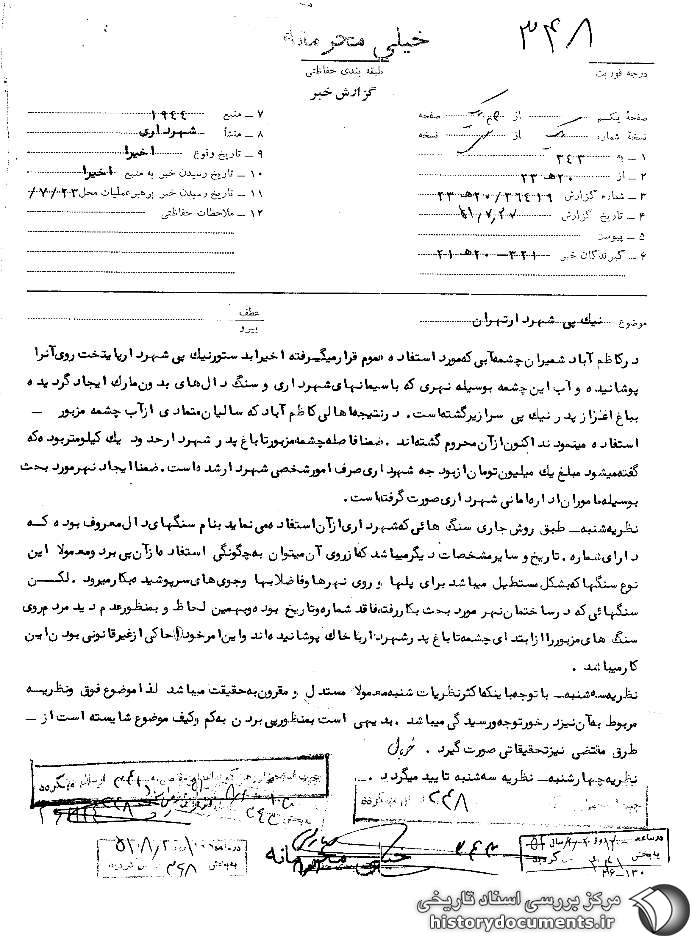 خیلی محرمانه
۳۴۸
طبقه بندی حفاظتی
درجه فوریت
گزارش خبر
صفحه یکم از یک صفحه
نسخه شماره از نسخه
۱ ــ به ۳۴۳
۲ ــ از ۲۰ هـ ۲۳
۳ ــ شماره گزارش ۲۰/۳۶۴۱۹ هـ ۲۳
۴ ــ تاریخ گزارش ۵۱,۷,۲۷
۵ ــ پیوست
۶ ــ گیرندگان خبر ۳۲۱ــ ۲۰ هـ ۲۱
۷ ــ منبع ۱۹۴۴
۸ ــ منشأ شهرداری
۹ ــ تاریخ وقوع اخیرا
۱۰ ــ تاریخ رسیدن خبر به منبع اخیرا
۱۱ ــ تاریخ رسیدن خبر برهبر عملیات محل ۷/۲۳/
۱۲ ــ ملاحظات حفاظتی
موضوع نیک پی شهردار تهران
عطف
پیرو
در کاظم آباد شمیران چشمه آبی که مورد استفاده عموم قرار میگرفته اخیرا بدستور نیک پی شهردار پایتخت روی آنرا
پوشانیده و آب این چشمه بوسیله نهری که با سیمانهای شهرداری و سنگ دال های بدون مارک ایجاد گردیده
بباغ اغنراز پدر نیک پی سرازیر گشته است . در نتیجه اهالی کاظم آباد که سالیان متمادی از آب چشمه مزبور ــ
استفاده مینمودند اکنون از آن محروم گشته اند . ضمنا فاصله چشمه مزبور تا باغ پدر شهردار حدود یک کیلومتر بوده که
گفته میشود مبلغ یک میلیون تومان از بودجه شهرداری صرف امور شخصی شهردار شده است . ضمنا ایجاد نهر مورد بحث
بوسیله ماموران اداره امانی شهرداری صورت گرفته است .
نظریه شنبه ــ طبق روش جاری سنگ هائی که شهرداری از آن استفاده می نماید بنام سنگهای دال معروف بوده که
دارای شماره ، تاریخ و سایر مشخصات دیگر میباشد که از روی آن میتوان به چگونگی استفاده از آن پی برد و معمولا این
نوع سنگها که بشکل مستطیل میباشد برای پلها و روی نهرها و فاضلابها وجوی های سرپوشیده بکار میرود . لکن
سنگهائی که در ساختمان نهر مورد بحث بکار رفته فاقد شماره و تاریخ بوده و بهمین لحاظ و بمنظور عدم دید مردم روی
سنگ های مزبور را از ابتدای چشمه تا باغ پدر شهردار با خاک پوشانیده اند و این امر خود حاکی از غیر قانونی بودن این
کار میباشد .
نظریه سه شنبه ــ با توجه باینکه اکثر نظریات شنبه معمولا مستدل و مقرون به حقیقت میباشد لذا موضوع فوق و نظریه
مربوط به آن نیز در خور توجه و رسیدگی میباشد . بدیهی است بمنظور پی بردن به کم و کیف موضوع شایسته است از ــ
طرق مقتضی نیز تحقیقاتی صورت گیرد .
نظریه چهارشنبه ــ نظریه سه شنبه تایید میگردد .
۲۴۸
۳۴۳
خیلی محرمانه
مرکز بررسی اسناد تاریخی
historydocuments.ir